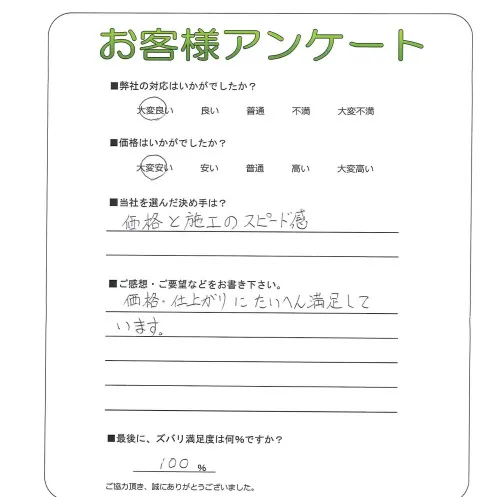 お客様アンケート
■弊社の対応はいかがでしたか？
大変良い 良い 普通 不満 大変不満
■価格はいかがでしたか？
大変安い 安い 普通 高い 大変高い
■当社を選んだ決め手は？
価格と施工のスピード感
■ご感想・ご要望などをお書き下さい。
価格・仕上がりにたいへん満足して
います。
■最後に、ズバリ満足度は何%ですか？
100 %
ご協力頂き、誠にありがとうございました。